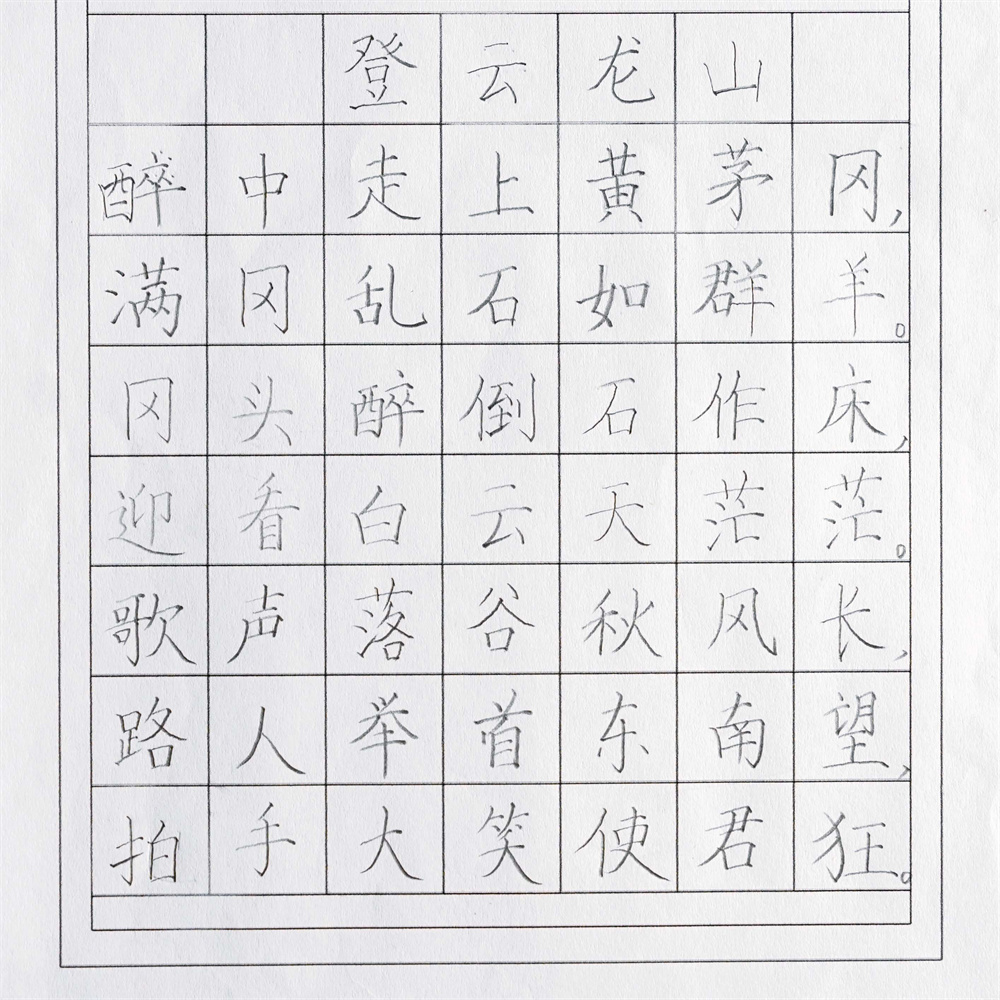 登云龙山
醉中走上黄茅冈,
满冈乱石如群羊。
冈头醉倒石作床,
迎看白云天茫茫。
歌声落谷秋风长,
路人举首东南望,
拍手大笑使君狂。